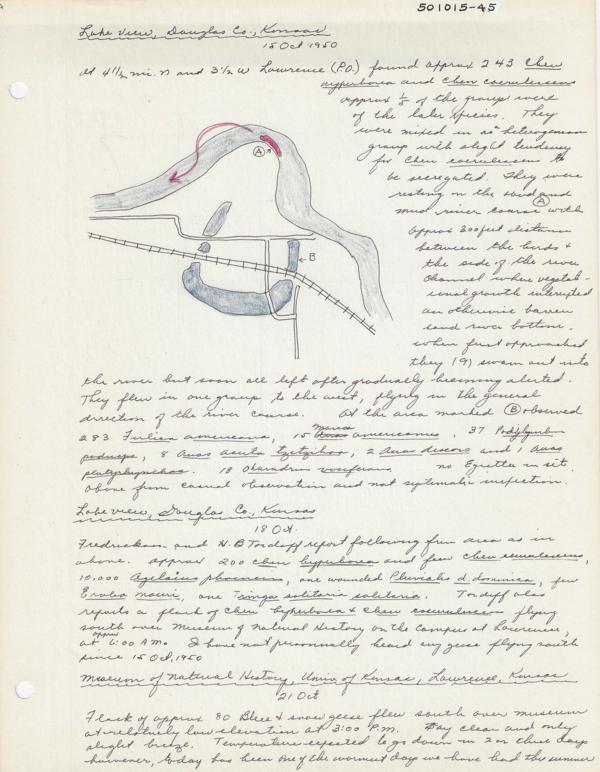 501015-45
Lake View, Douglas Co., Kansas
15 Oct 1950
At 4 1/2 mi. N and 3 1/2 W Lawrence (P.O.) found approx 243 Chen
hyperborea and Chen coerulescens
approx 1/5 of the group were
of the later species. They
were mixed in as heterogeneous
group with slight tendency
for Chen coerulescens to
be segregated. They were
resting on the sand and
A
mud river course with
approx 300 feet distance
between the birds &
the side of the river
channel where vegetat-
ional growth interrupted
an otherwise barren
sand river bottom.
When first approached
they (9) swam out into
A
B
the river but soon all left after gradually becoming alerted.
They flew in one group to the west, flying in the general
direction of the river course. At the area marked B observed
283 Fulica americana, 15 Mareca americanus, 37 Podilymbus
podiceps, 8 Anas acuta tzitzihoa, 2 Anas discors and 1 Anas
platyrhynchos. 18 Charadrius vociferus no Egretta in sit.
Above from casual observation and not systematic inspection.
Lake view, Douglas Co., Kansas
18 Oct.
Fredrickson and H.B. Tordoff report following from area as in
above. Approx 200 Chen hyperborea and few Chen coerulescens,
10,000 Agelaius phoeniceus, one wounded Pluvialis d. dominica, few
Erolia mauri, one Tringa solitaria solitaria. Tordoff also
reports a flock of Chen hyperborea & Chen coerulescens flying
south over Museum of Natural History on the Campus at Lawrence,
at approx 6:00 A.M. I have not personnally heard any geese flying south
since 15 Oct, 1950
Museum of Natural History, Univ of Kansas, Lawrence, Kansas
21 Oct
Flock of approx 80 Blue & snow geese flew south over museum
at relatively low elevation at 3:00 P.M. Day clear and only
slight breeze. Temperature expected to go down in 2 or three days
however, today has been one of the warmest days we have had the summer